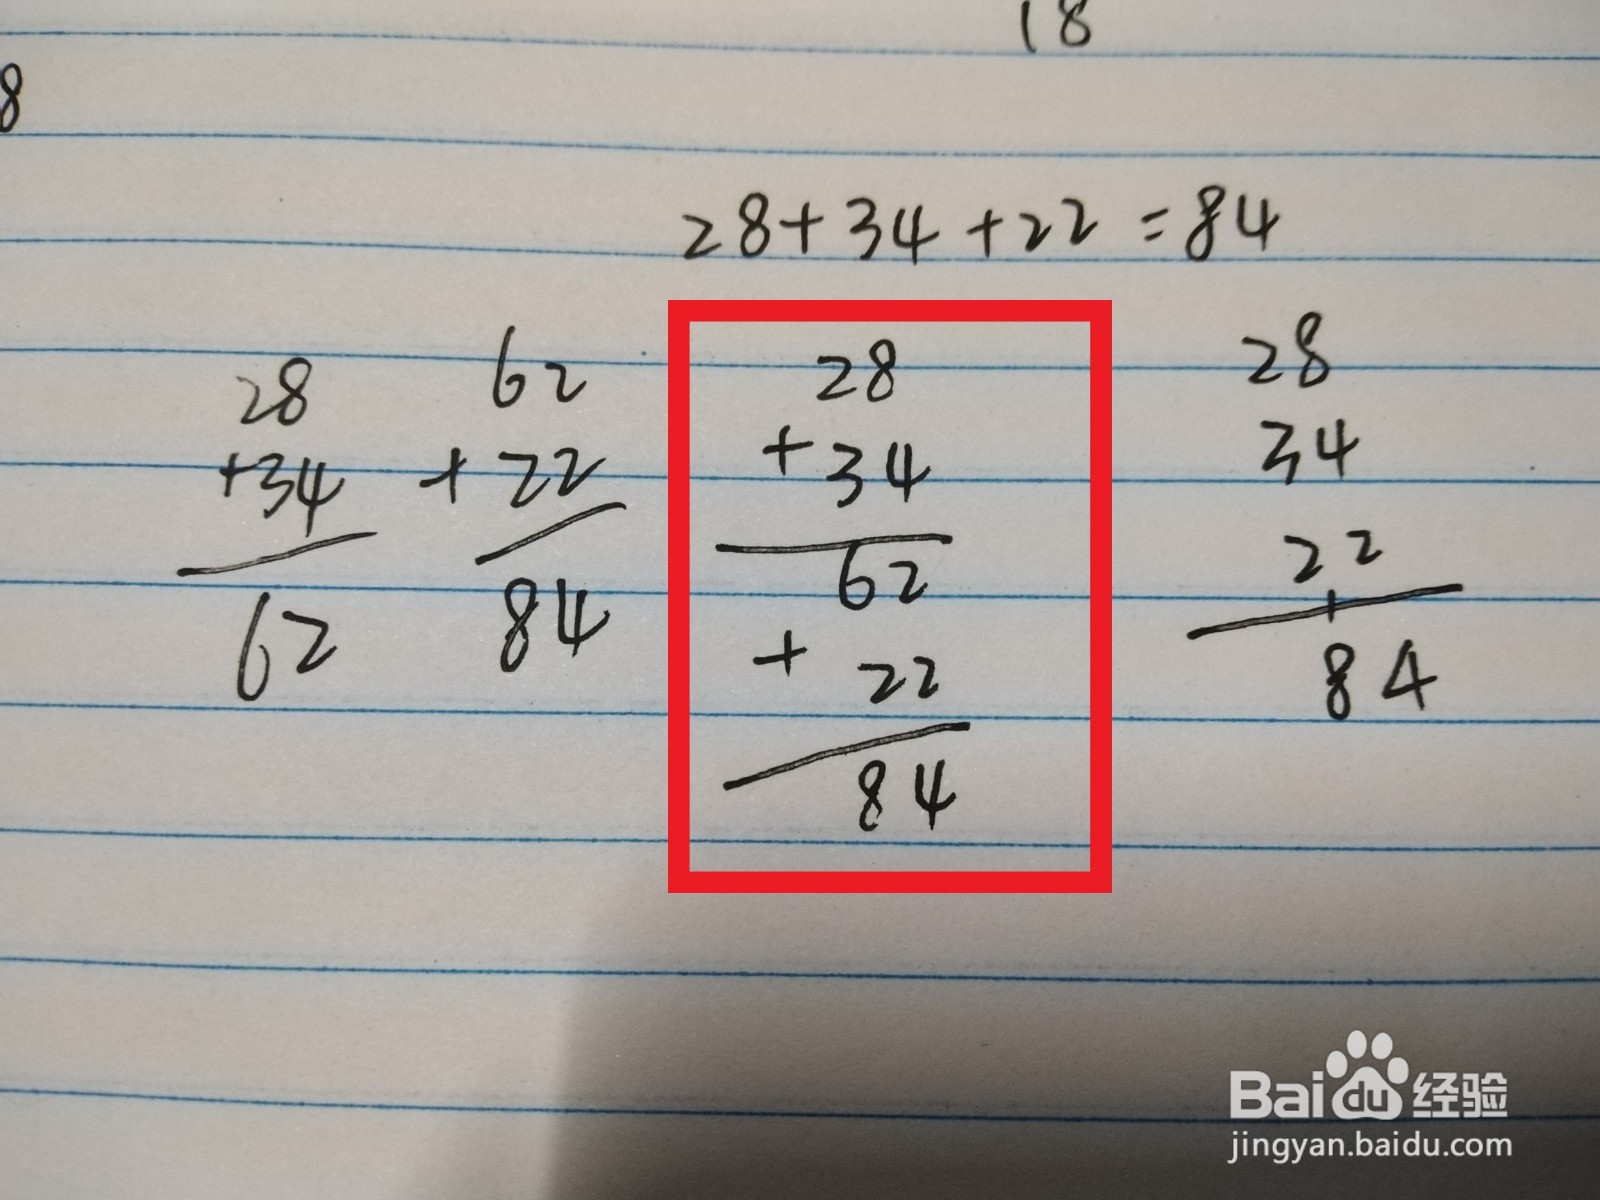 18
8
28+34+22=84
28
+34
62
62
+22
84
28
+34
62
+22
84
28
34
22
+
84
Baidu经验
jingyan.baidu.com